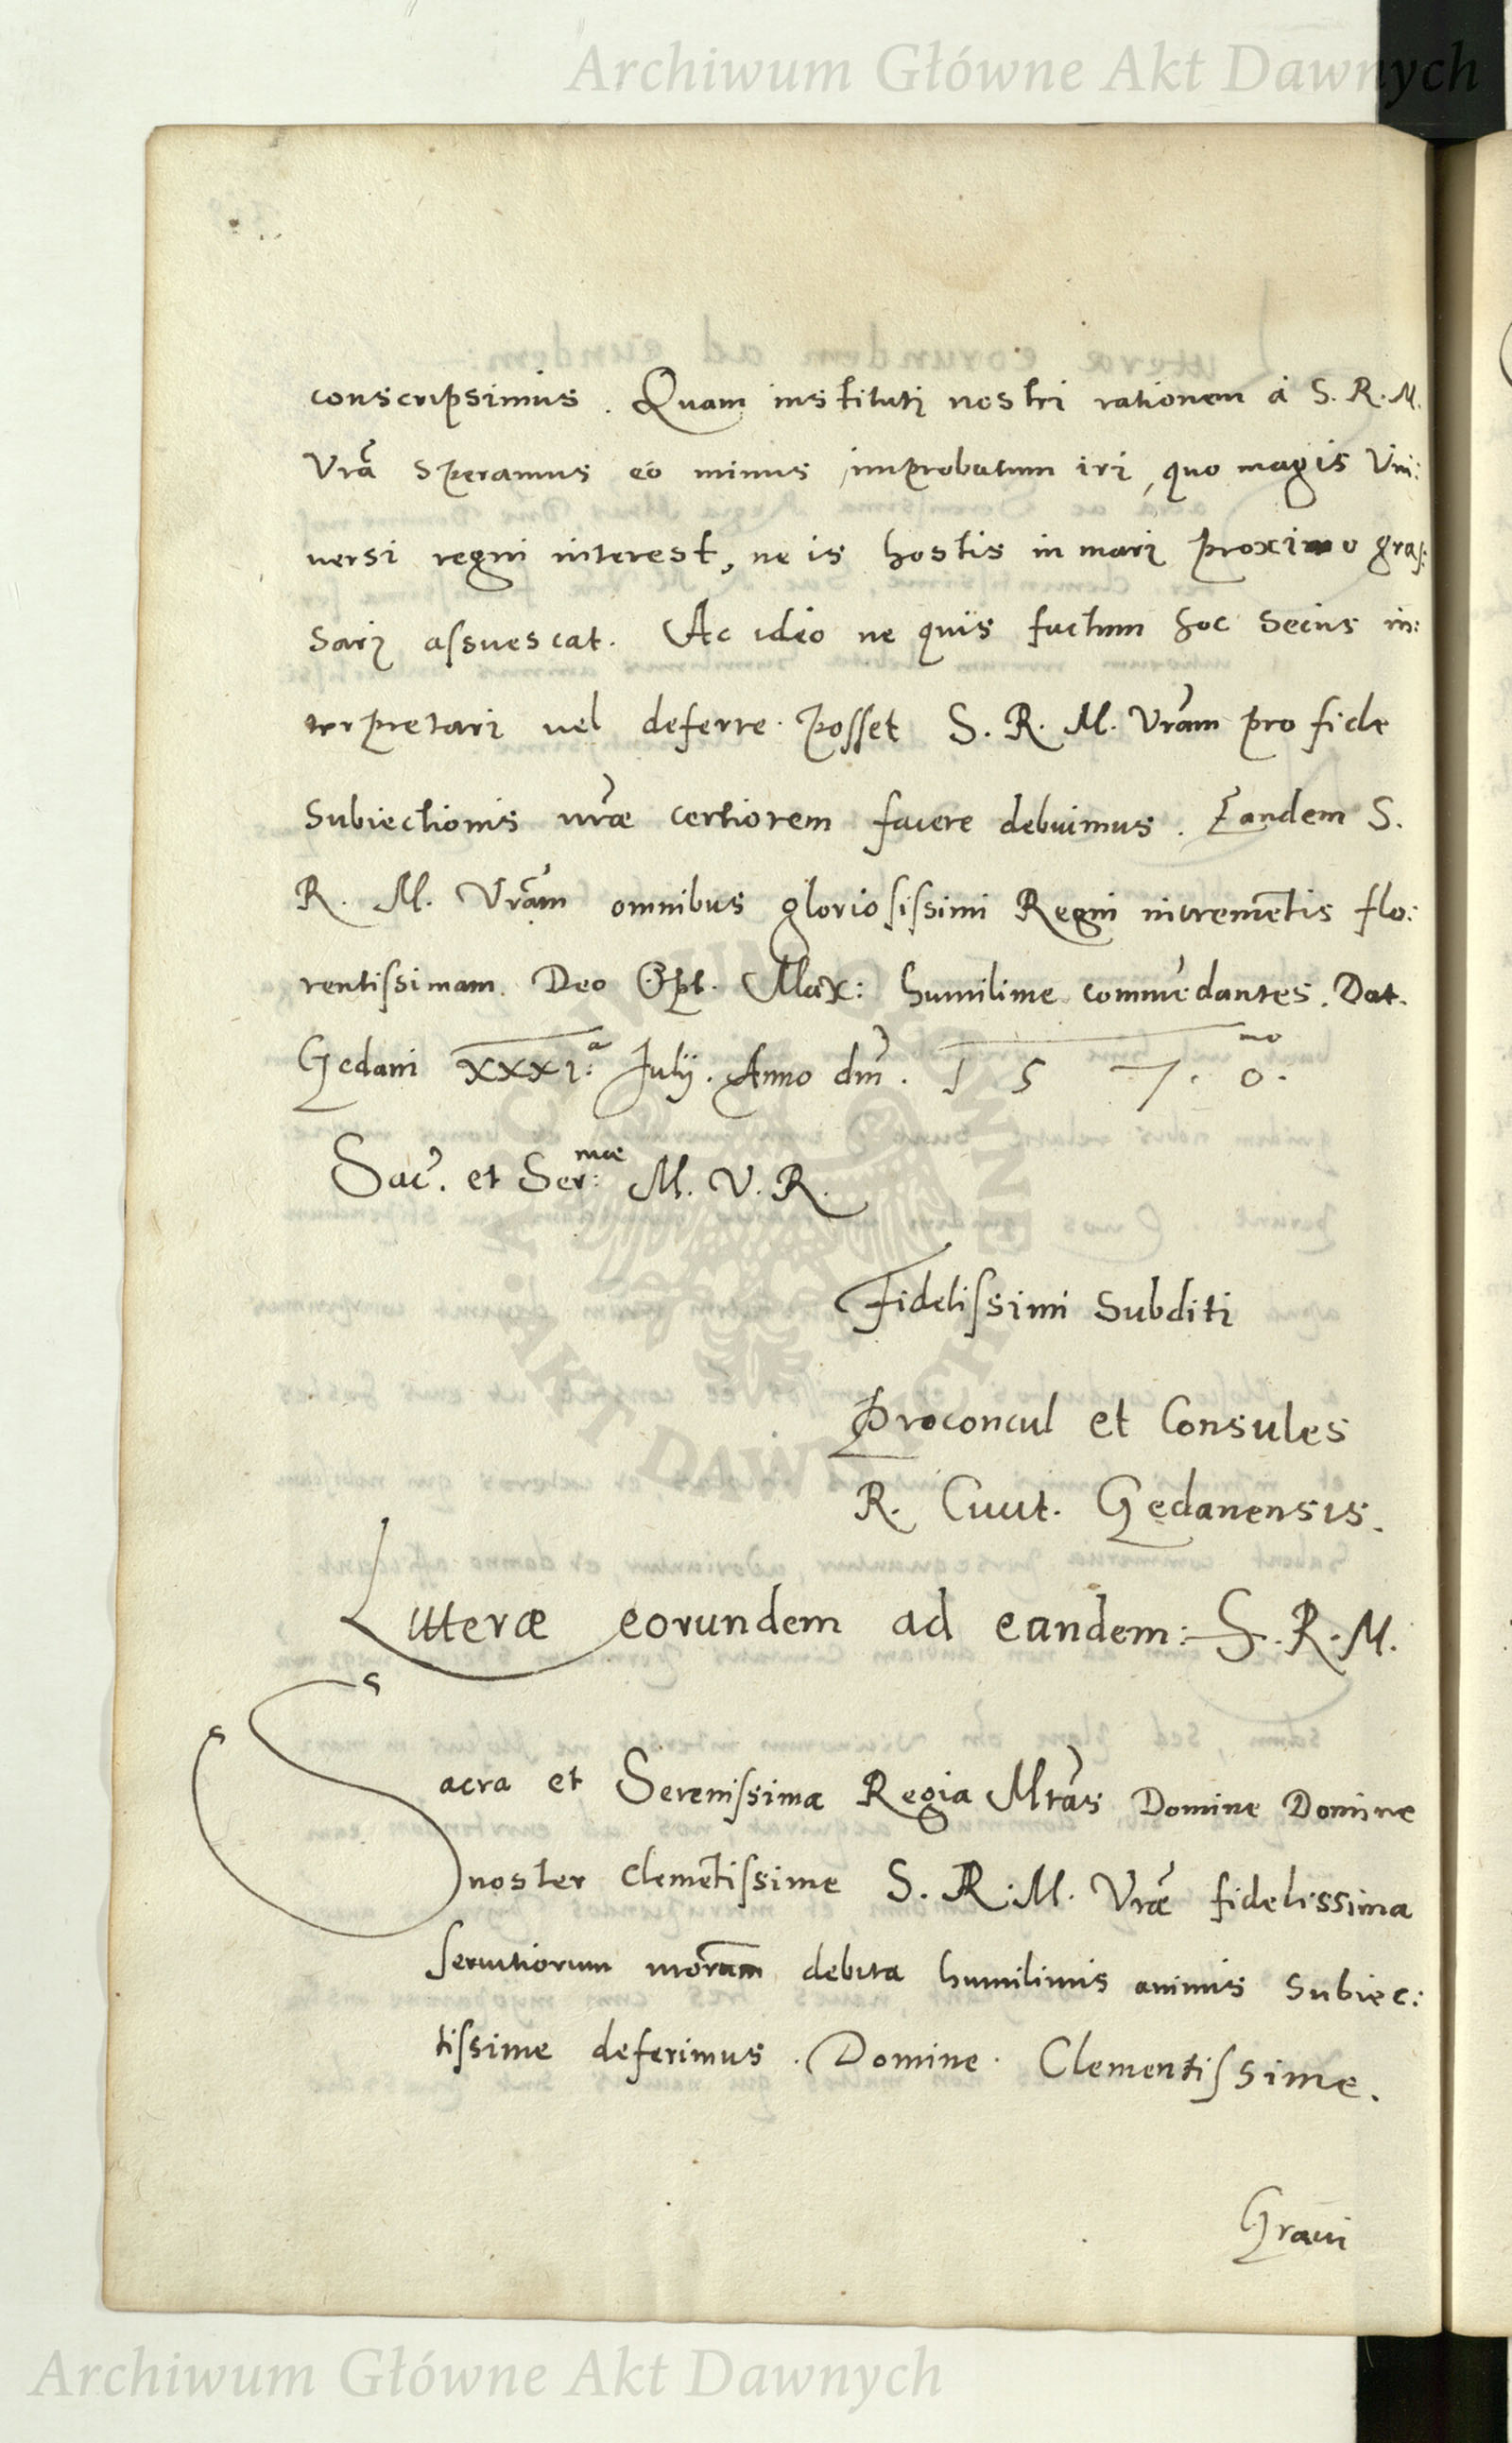 Archiwum Główne Akt Dawnych
conscripsimus. Quam instituti nostri rationem á S. R. M.
Vrã speramus eó minus improbatum iri, quo magis Vni:
versi regni interest, ne is hostis in mari proximo graſ:
sari aſsuescat. Ac ideo ne quis factum hoc secius in:
terpretari vel deferre posset S. R. M. Vrãm pro fide
Subiectionis nrãe certiorem facere debuimus. Eandem S.
R. M. Vrãm omnibus glorioſiſsimi Regni incremẽtis flo:
rentiſsimam Deo Opt. Max: humilime commẽdantes. Dat.
Gedani XXXI.ª Julij. Anno dni. 1 5 7. 0.mo
Sac. et Ser:mae M. V. R.
Fideliſsimi Subditi
Proconcul et Consules
R. Ciuit. Gedanensis.
Litterae eorundem ad eandem: S. R. M.
Sacra et Sereniſsima Regia Mtãs Domine Domine
noster Clemẽtiſsime S. R. M. Vrãe fidelissima
ſeruitiorum nrorum debita humilimis animis Subiec:
tiſsime deferimus. Domine Clementiſsime.
Graui
Archiwum Główne Akt Dawnych